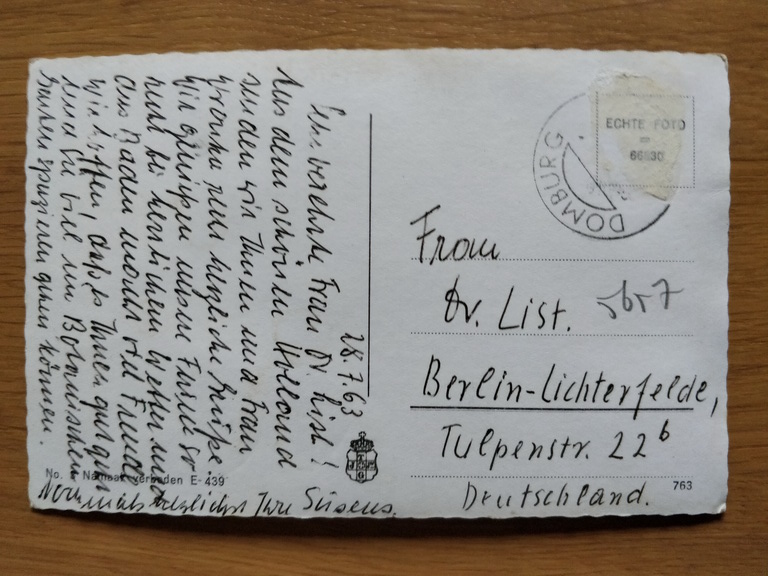 28.7.63
Sehr verehrte Frau Dr. List!
Aus dem schönen Holland
senden wir Ihnen und Frau
recht herzliche Grüße.
Wir genießen unsere Ferien
bei herrlichem Wetter und
das Baden macht viel Freude
Wir hoffen, daß es Ihnen gut geht
und Sie viel im Botanischen
Garten spazieren gehen können.
Nochmals herzlichst Ihre Süsens.
No. Nadruk verboden E-439
DOMBURG
ECHTE FOTO
66830
Frau
Dr. List.
5657
Berlin-Lichterfelde,
Tulpenstr. 22b
Deutschland.
763